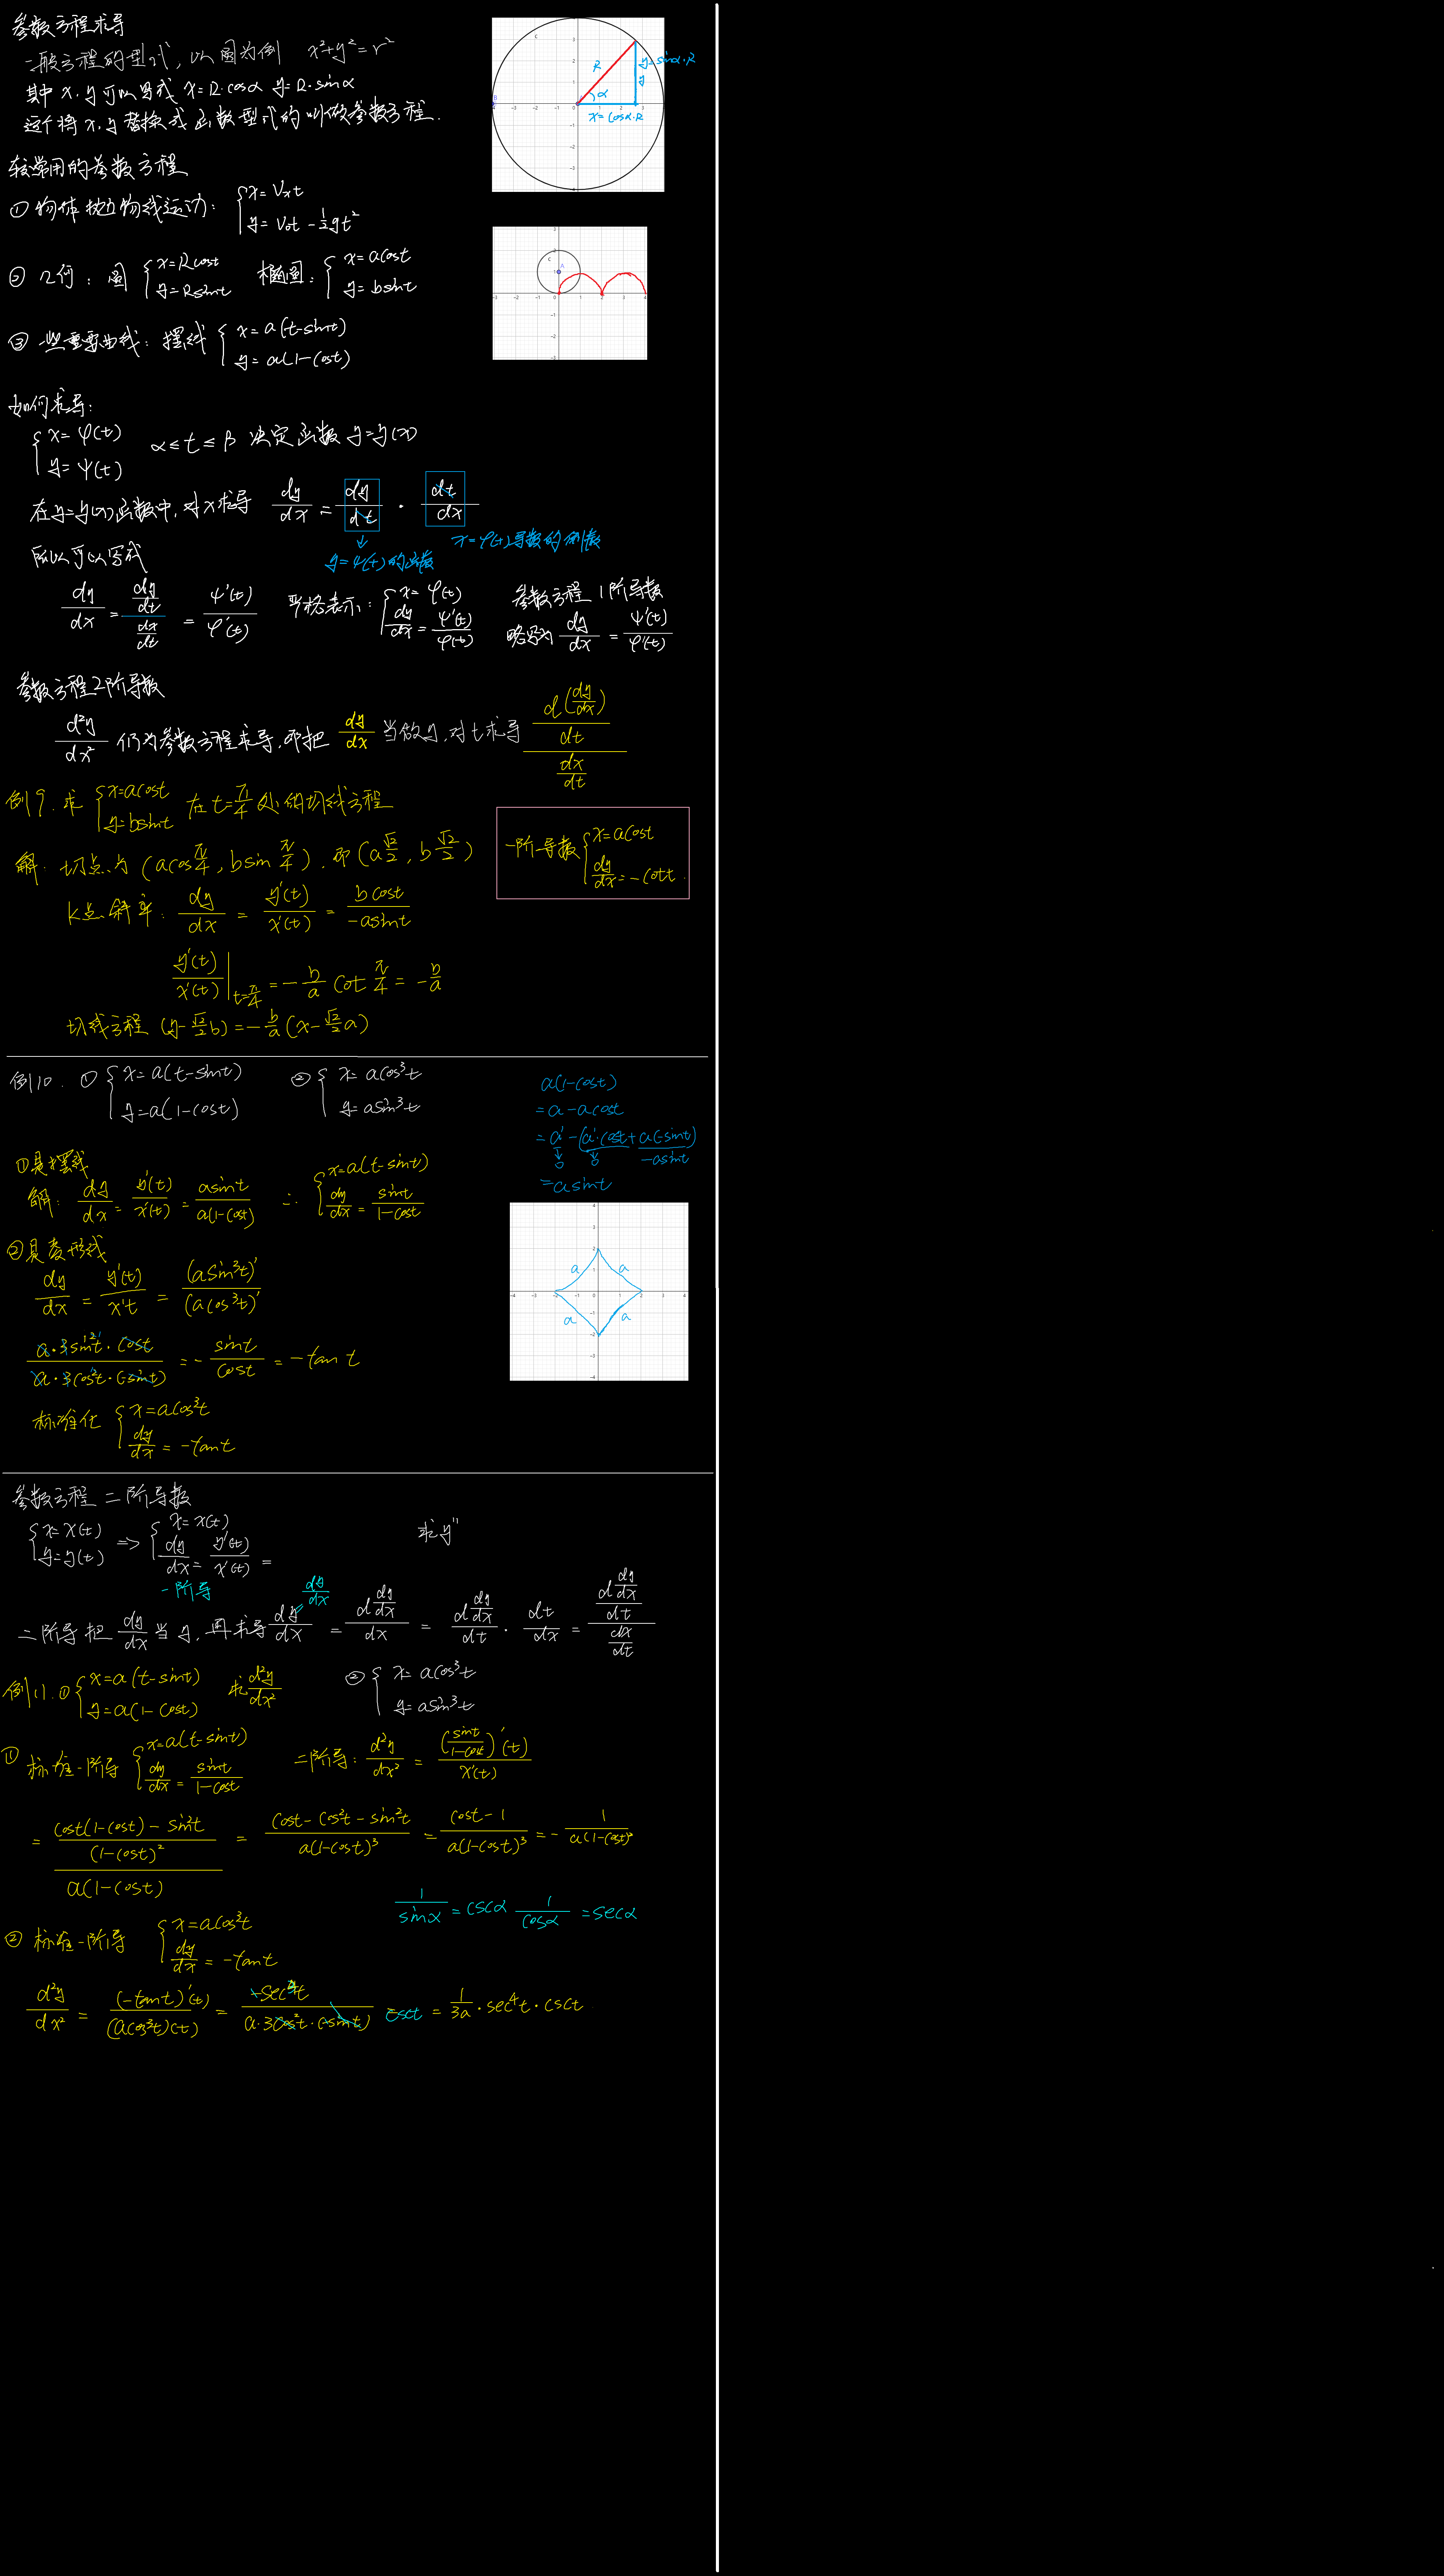 参数方程求导
一般方程的型式，以圆为例 x²+y²=r²
其中x,y可以写成 x=R·cosα y=R·sinα
这个将x,y替换成函数型式的叫做参数方程.
R
α
y=sinα·R
x=cosα·R
较常用的参数方程
① 物体抛物线运动： { x=Vxt
y=V₀t-½gt²
② 几何：圆 { x=Rcost 椭圆： { x=acost
y=Rsint y=bsint
③ 一些重要曲线：摆线 { x=a(t-sint)
y=a(1-cost)
如何求导：
{ x=φ(t) α≤t≤β 决定函数 y=y(x)
y=ψ(t)
在y=y(x)函数中，对x求导 dy/dx = dy/dt · dt/dx
y=ψ(t)的函数
x=φ(t)导数的倒数
所以可以写成
dy/dx = (dy/dt)/(dx/dt) = ψ'(t)/φ'(t) 严格表示：{ x=φ(t) dy/dx=ψ'(t)/φ'(t) 参数方程1阶导数
略写为 dy/dx = ψ'(t)/φ'(t)
参数方程2阶导数
d²y/dx² 仍为参数方程求导，即把 dy/dx 当做y，对t求导 (d(dy/dx)/dt)/(dx/dt)
例9. 求 { x=acost y=bsint 在t=π/4处的切线方程
解：切点为 (acos π/4, bsin π/4)，即 (a√2/2, b√2/2)
一阶导数 { x=acost
dy/dx=-cott.
K点斜率： dy/dx = y'(t)/x'(t) = bcost/-asint
y'(t)/x'(t)|t=π/4 = -b/a cot π/4 = -b/a
切线方程 (y-√2/2 b)=-b/a(x-√2/2 a)
例10. ① { x=a(t-sint) ② { x=acos³t
y=a(1-cost) y=asin³t
a(1-cost)
=a-acost
=a'-(a'·cost+a(-sint)
0 0 -asint
=asint
①是摆线
解： dy/dx = y'(t)/x'(t) = asint/a(1-cost) ∴ { x=a(t-sint) dy/dx = sint/1-cost
②是菱形线
dy/dx = y'(t)/x't = (asin³t)'/(acos³t)'
a a
a a
a·3sin²t·cost/a·3cos²t·(-sint) = -sint/cost = -tan t
标准化 { x=acos³t
dy/dx = -tant
参数方程 二阶导数
{ x=x(t) => { x=x(t) 求y''
y=y(t) dy/dx = y'(t)/x'(t) =
一阶导
dy/dx
二阶导把 dy/dx 当y，再求导 dy/dx = d(dy/dx)/dx = d(dy/dx)/dt · dt/dx = (d(dy/dx)/dt)/(dx/dt)
例11. ① { x=a(t-sint) 求 d²y/dx² ② { x=acos³t
y=a(1-cost) y=asin³t
① 标准一阶导 { x=a(t-sint) dy/dx = sint/1-cost 二阶导： d²y/dx² = (sint/1-cost)'(t)/x'(t)
= (cost(1-cost)-sin²t/(1-cost)²)/a(1-cost) = cost-cos²t-sin²t/a(1-cost)³ = cost-1/a(1-cost)³ = -1/a(1-cost)²
1/sinα = cscα 1/cosα = secα
② 标准一阶导 { x=acos³t
dy/dx = -tant
d²y/dx² = (-tant)'(t)/(acos³t)(t) = -sec⁴t/a·3cos²t·(-sint) csct = 1/3a · sec⁴t · csct